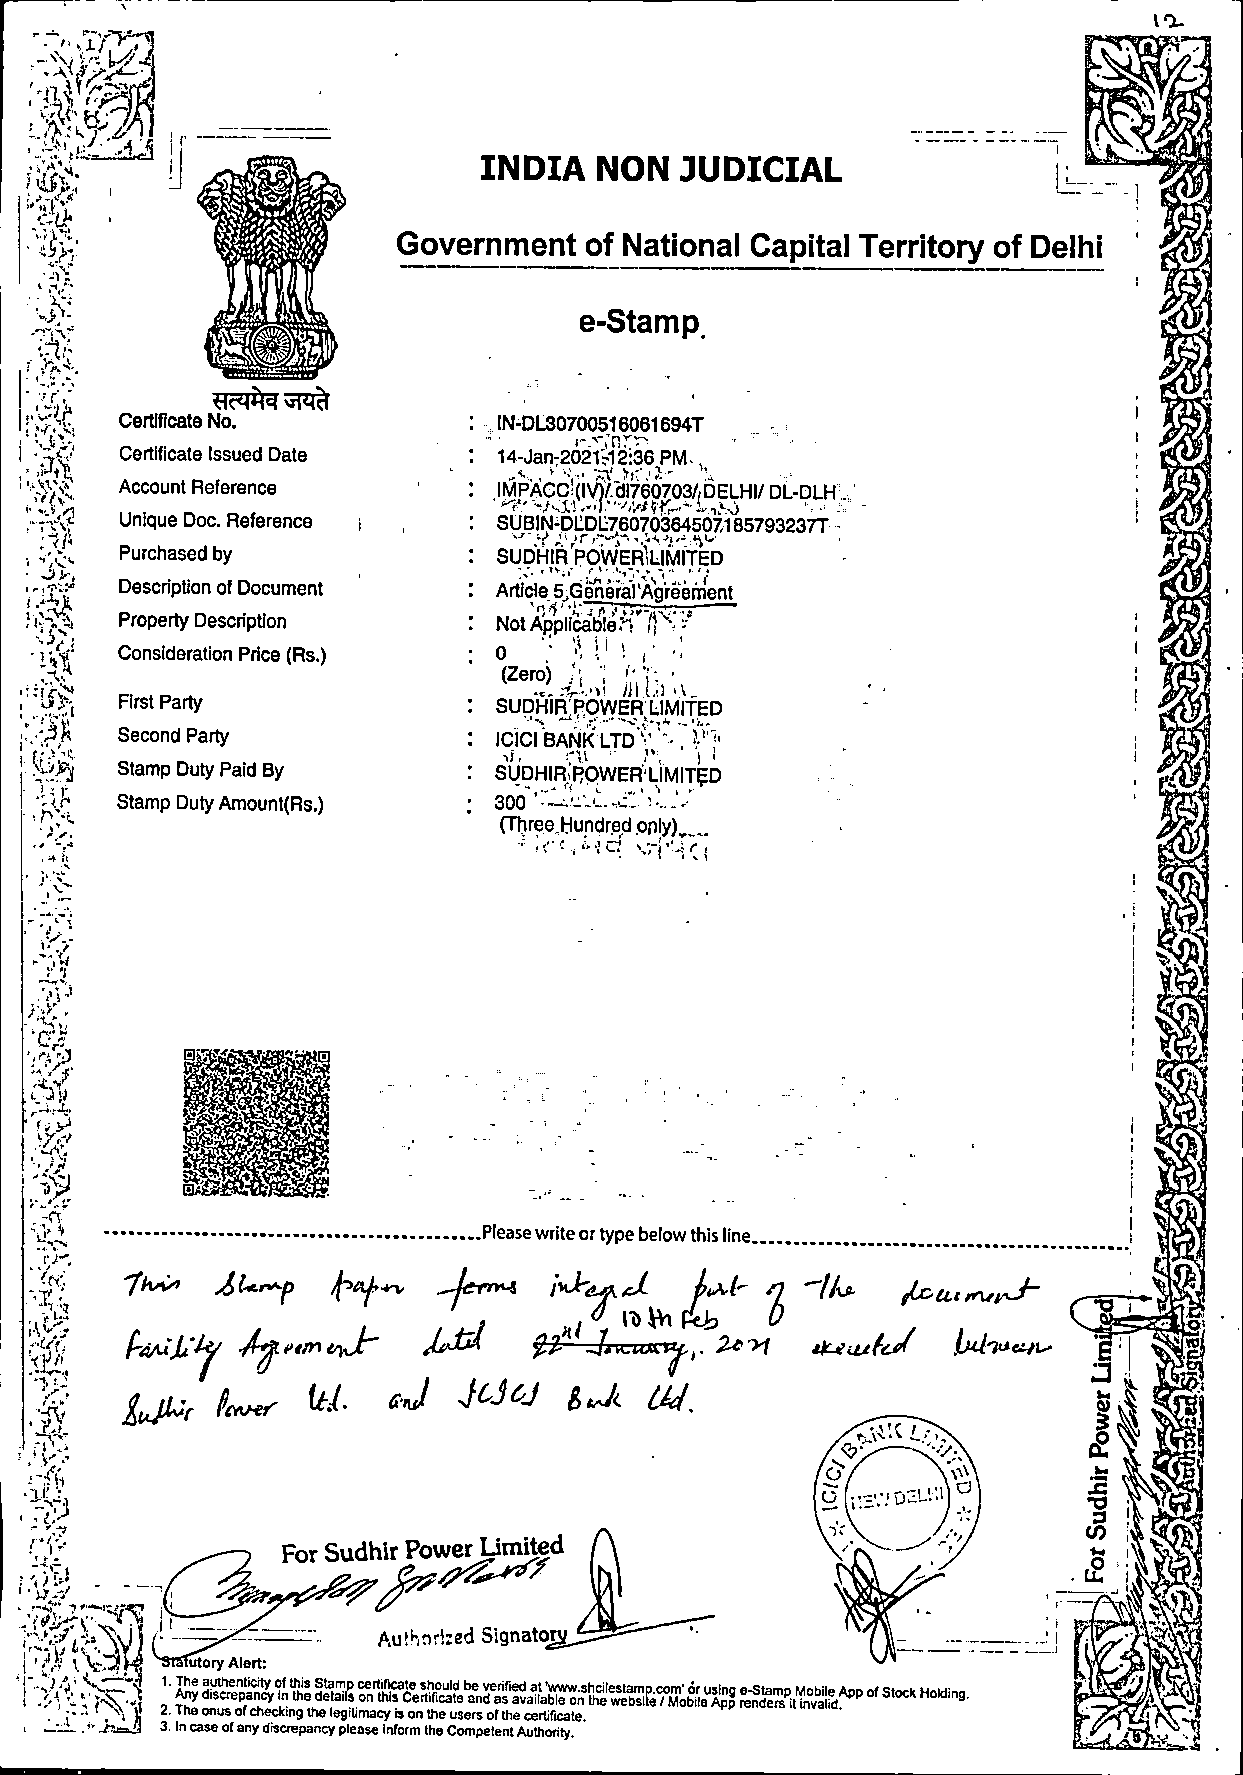 12
INDIA NON JUDICIAL
Government of National Capital Territory of Delhi
e-Stamp
सत्यमेव जयते
Certificate No. : IN-DL30700516061694T
Certificate Issued Date : 14-Jan-2021 12:36 PM
Account Reference : IMPACC (IV)/ dl760703/ DELHI/ DL-DLH
Unique Doc. Reference : SUBIN-DLDL76070364507185793237T
Purchased by : SUDHIR POWER LIMITED
Description of Document : Article 5 General Agreement
Property Description : Not Applicable
Consideration Price (Rs.) : 0
(Zero)
First Party : SUDHIR POWER LIMITED
Second Party : ICICI BANK LTD
Stamp Duty Paid By : SUDHIR POWER LIMITED
Stamp Duty Amount(Rs.) : 300
(Three Hundred only)
Please write or type below this line
This Stamp paper forms integral part of the document
10th Feb
Facility Agreement dated 22nd January, 2021 executed between
Sudhir Power Ltd. and ICICI Bank Ltd.
ICICI BANK LIMITED
NEW DELHI
For Sudhir Power Limited
Authorized Signatory
For Sudhir Power Limited
Authorized Signatory
Statutory Alert:
1. The authenticity of this Stamp certificate should be verified at 'www.shcilestamp.com' or using e-Stamp Mobile App of Stock Holding.
Any discrepancy in the details on this Certificate and as available on the website / Mobile App renders it invalid.
2. The onus of checking the legitimacy is on the users of the certificate.
3. In case of any discrepancy please inform the Competent Authority.